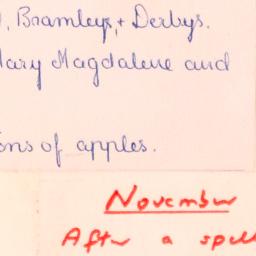 , Bramleys, + Derbys.
Mary Magdalene and
ons of apples.
November
After a spell